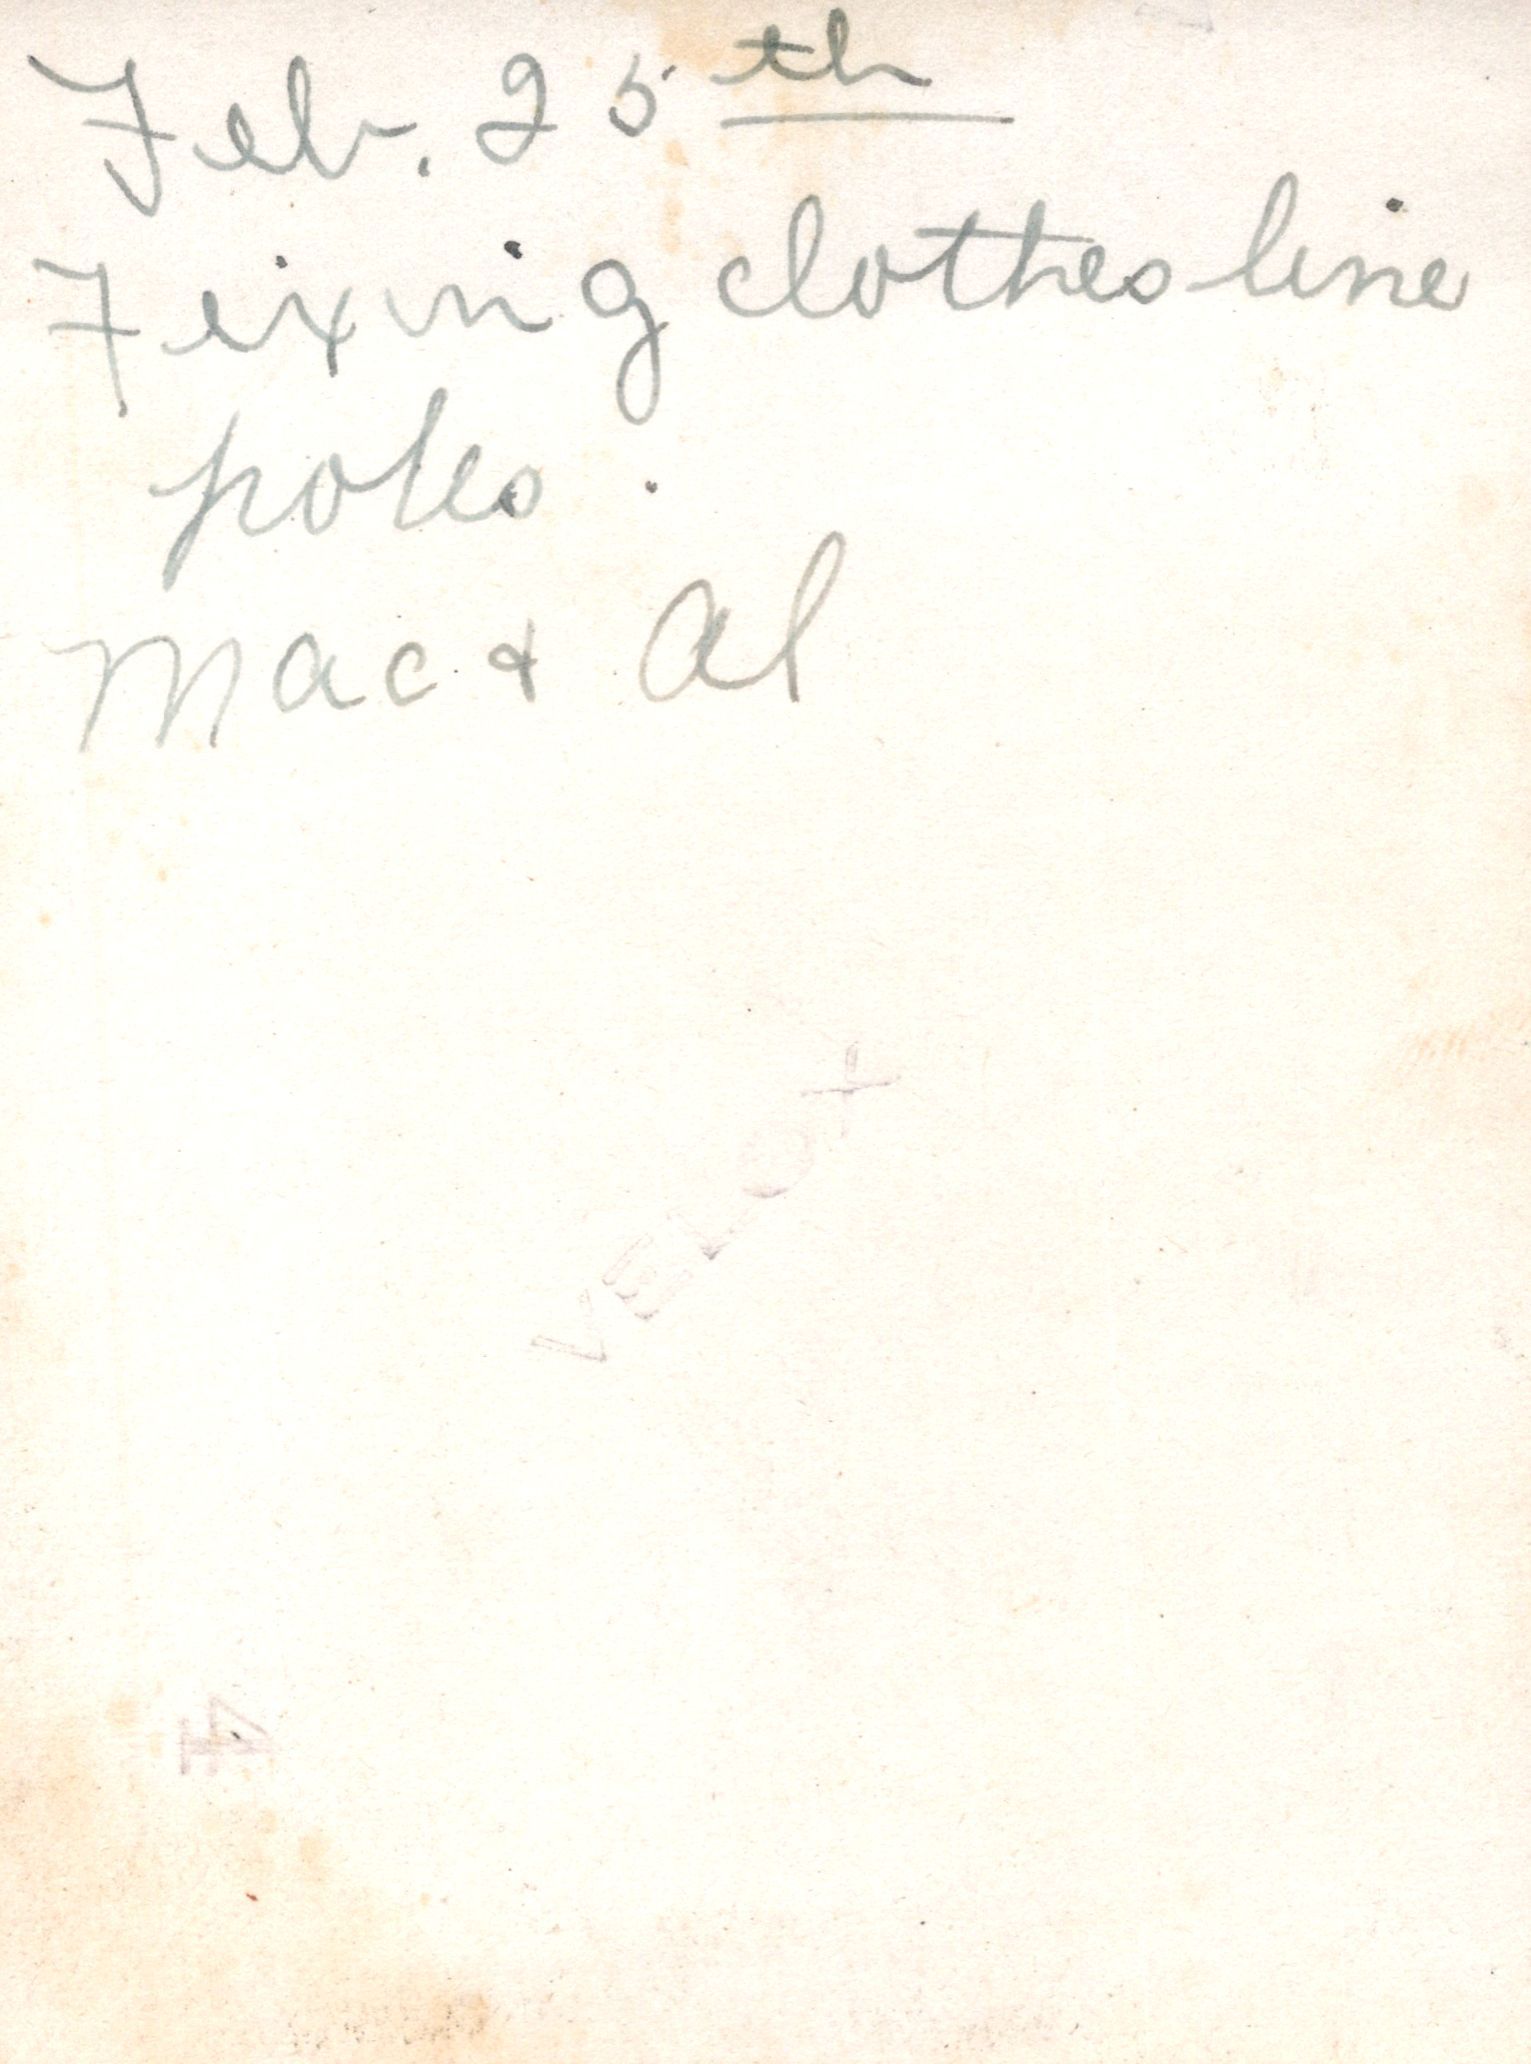 Feb. 25th
Fixing clothes line
poles.
Mac & Al
VELOX
4